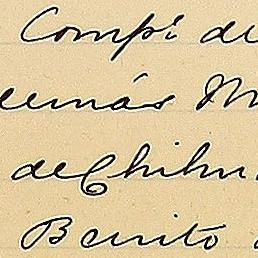 Comp.ⁱ de
demás M
de Chihu
Benito